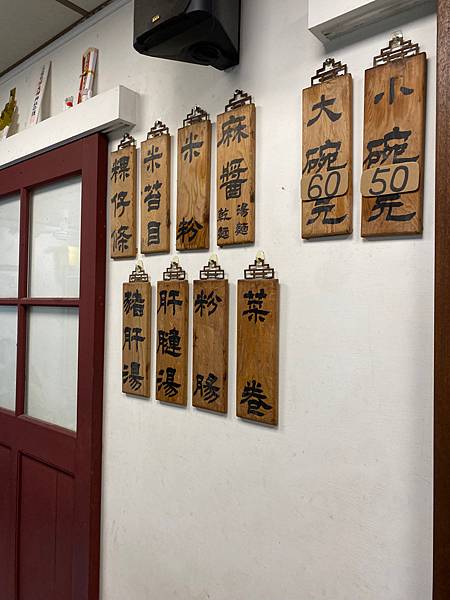 小碗50元
大碗60元
麻醬湯麵乾麵
米粉
米苔目
粿仔條
菜卷
粉腸
肝腱湯
豬肝湯